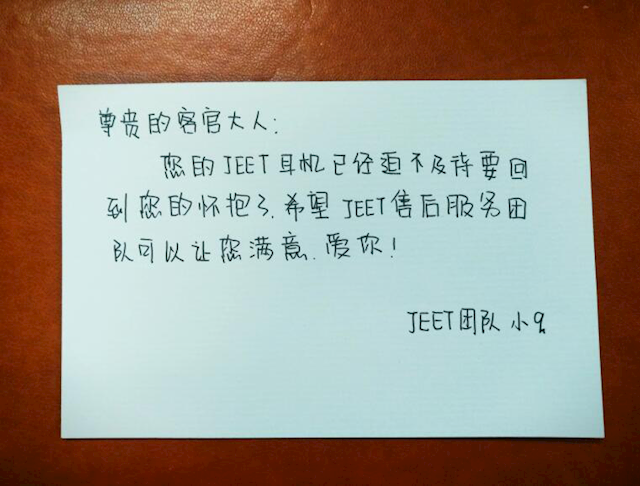 尊贵的客官大人:
您的JEET耳机已经迫不及待要回
到您的怀抱了.希望JEET售后服务团
队可以让您满意.爱你!
JEET团队 小q